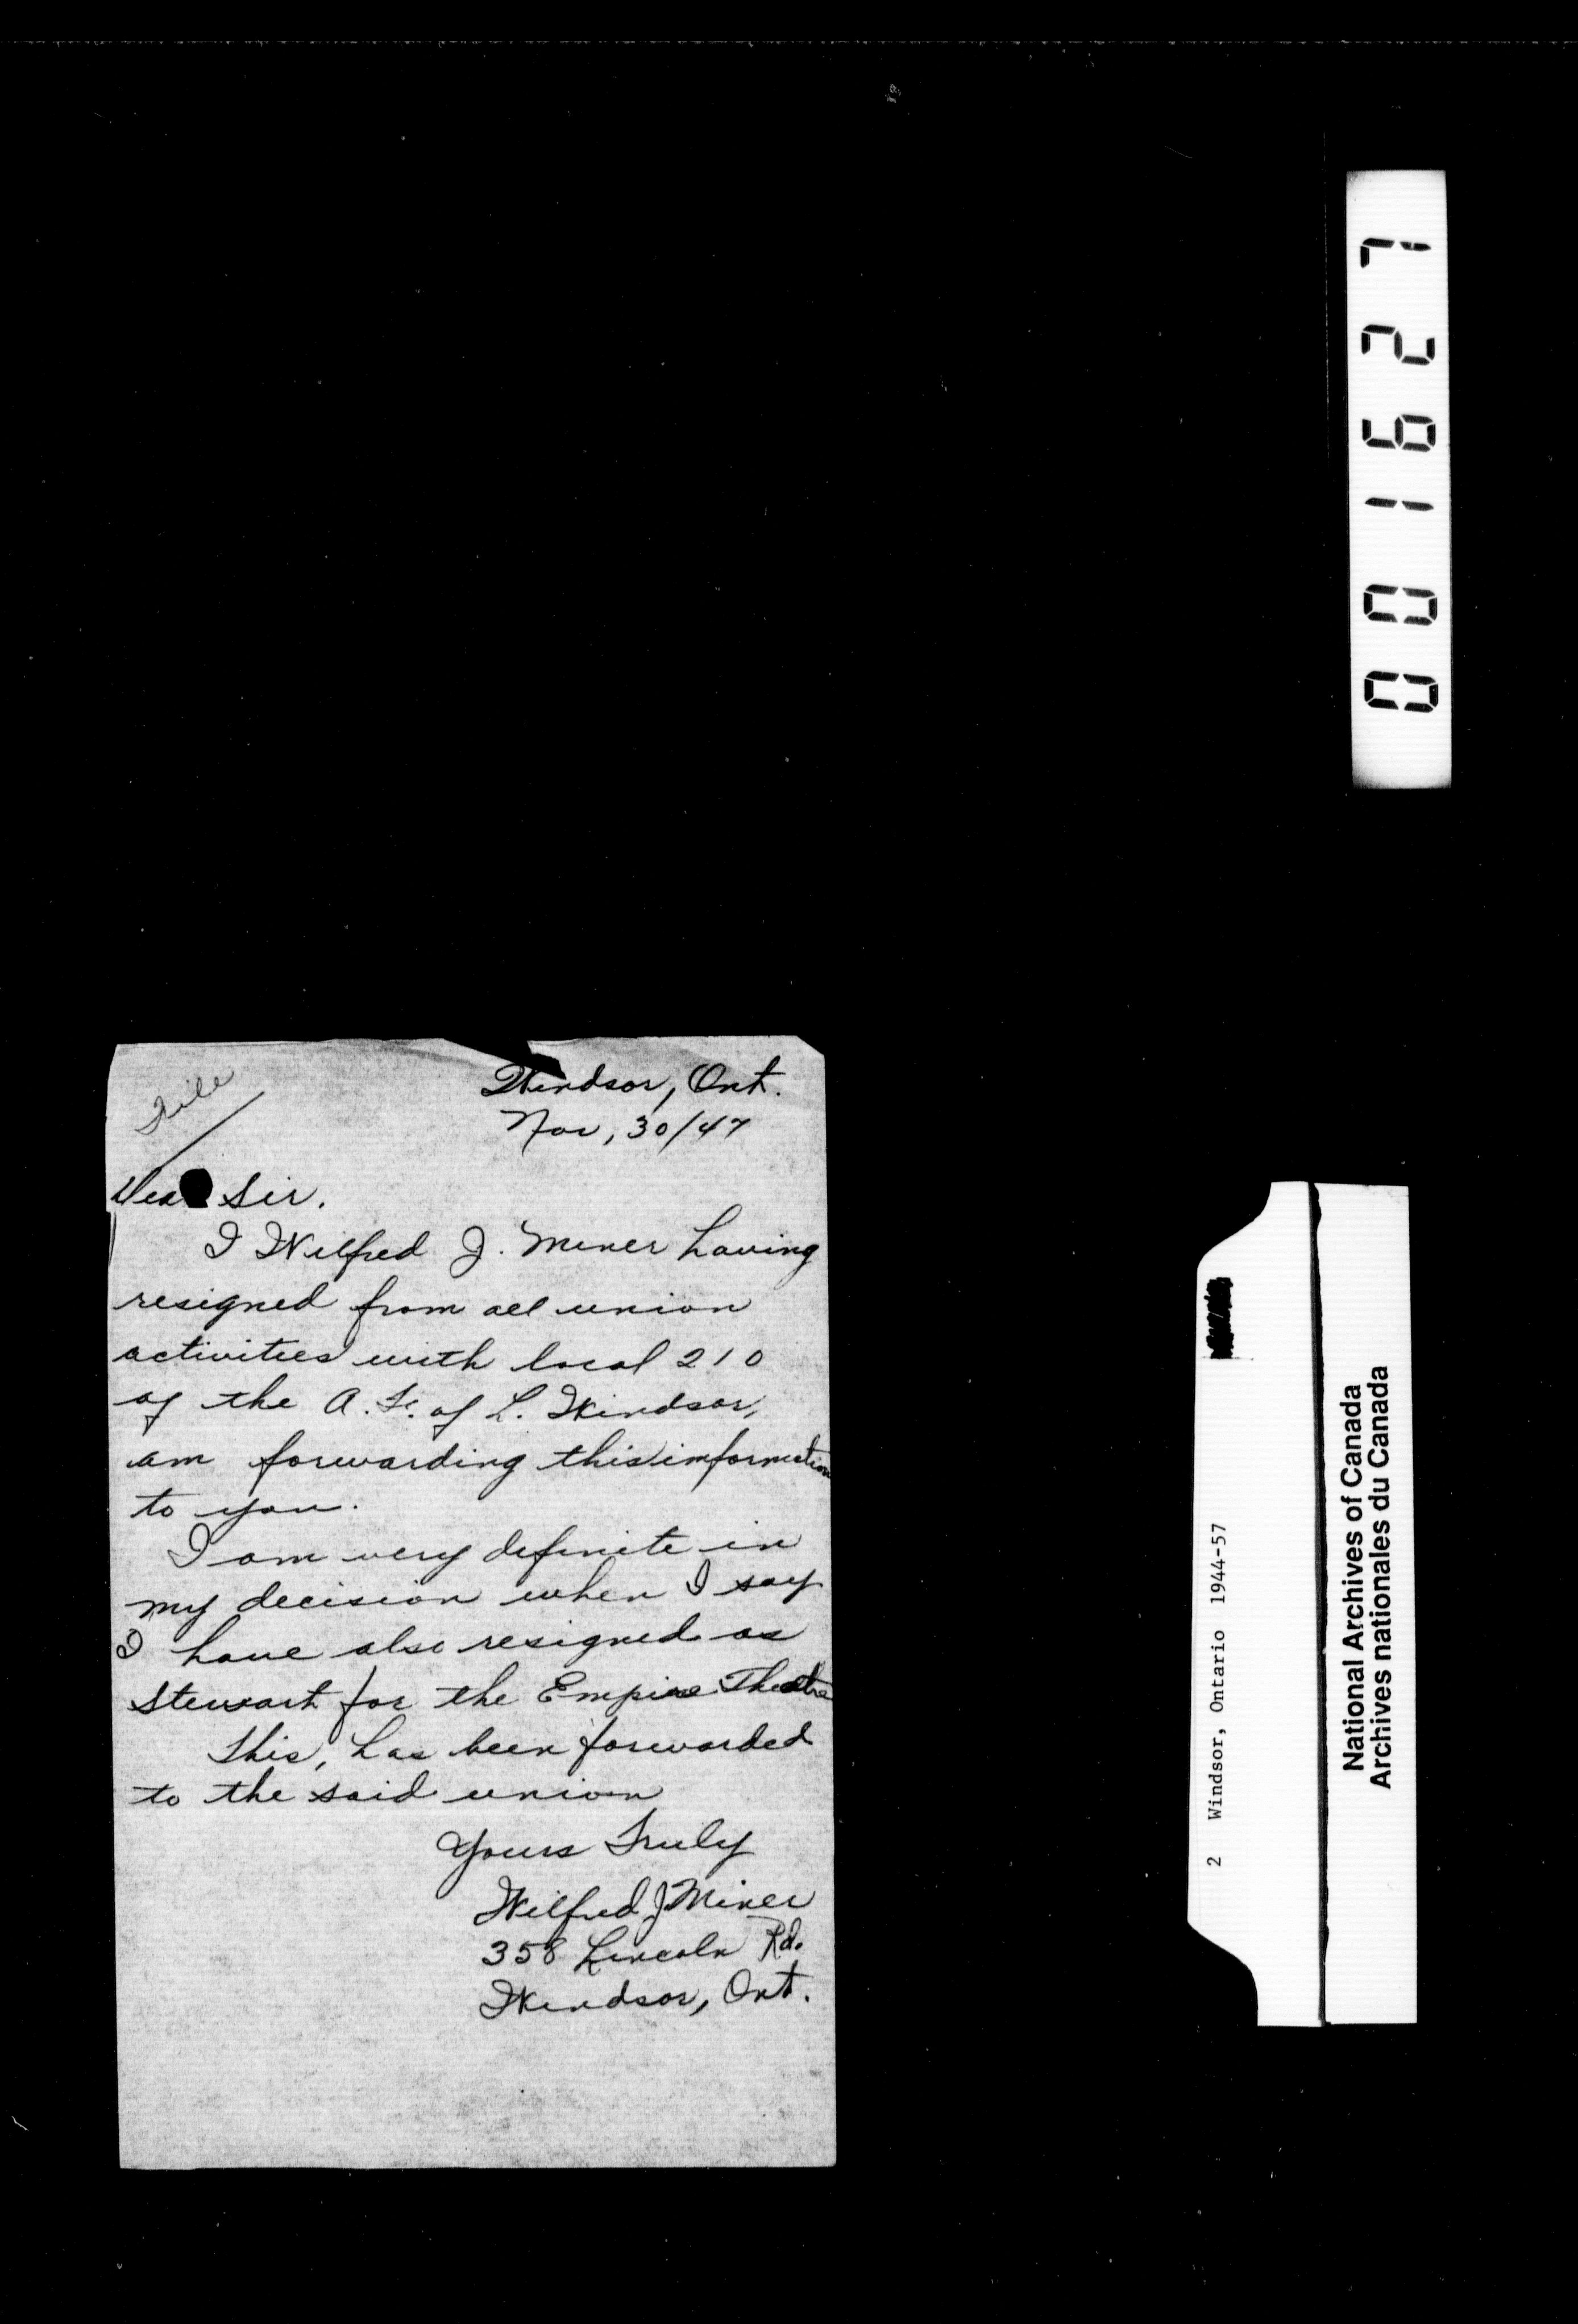 File
Windsor, Ont.
Nov, 30/47
Dear Sir.
I Wilfred J. Miner having
resigned from all union
activities with local 210
of the A. F. of L. Windsor,
am forwarding this information
to you.
I am very definite in
my decision when I say
I have also resigned as
Stewart for the Empire Theatre
This, has been forwarded
to the said union
Yours Truly
Wilfred J. Miner
358 Lincoln Rd.
Windsor, Ont.
001627
2 Windsor, Ontario 1944-57
National Archives of Canada
Archives nationales du Canada